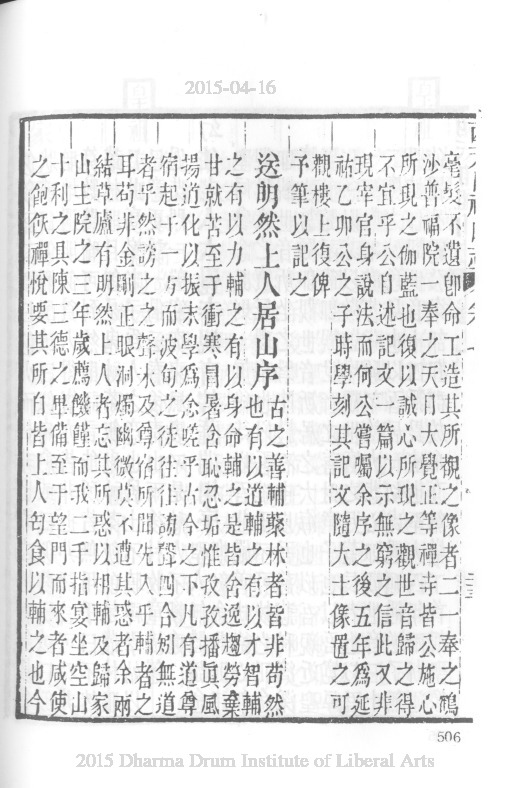 2015-04-16
毫髮不遺卽命工造其所覩之像者二一奉之鴈
沙普福院一奉之天目大覺正等禪寺皆公施心
所現之伽藍也復以誠心所現之觀世音歸之得
不宜乎公自述記文一篇以示無窮之信此又非
現宰官身說法而何公嘗囑余序之後五年爲延
祐乙卯公之子時學刻其記文隨大士像置之可
觀樓上復俾
予筆以記之
送明然上人居山序
古之善輔藂林者皆非苟然
也有以道輔之有以才智輔
之有以力輔之有以身命輔之是皆舍逸趨勞棄
甘就苦至于衝寒冒暑含恥忍垢惟孜孜播眞風
揚道化以振末學爲念嗟乎古今之下凡有道尊
宿起于一方而波旬之徒往往謗聲四合矧無道
者乎然謗之之聲未及尊宿所聞先入乎輔者之
耳苟非金剛正眼洞燭幽微莫不遭其惑者余兩
結草廬有明然上人者忘其所惑以相輔及歸家
山主院之三年歲薦饑饉而我二千指宴坐空山
十利之具陳三德之畢備至于望門而來者咸使
之飽飫禪悅要其所自皆上人匄食以輔之也今
506
2015 Dharma Drum Institute of Liberal Arts